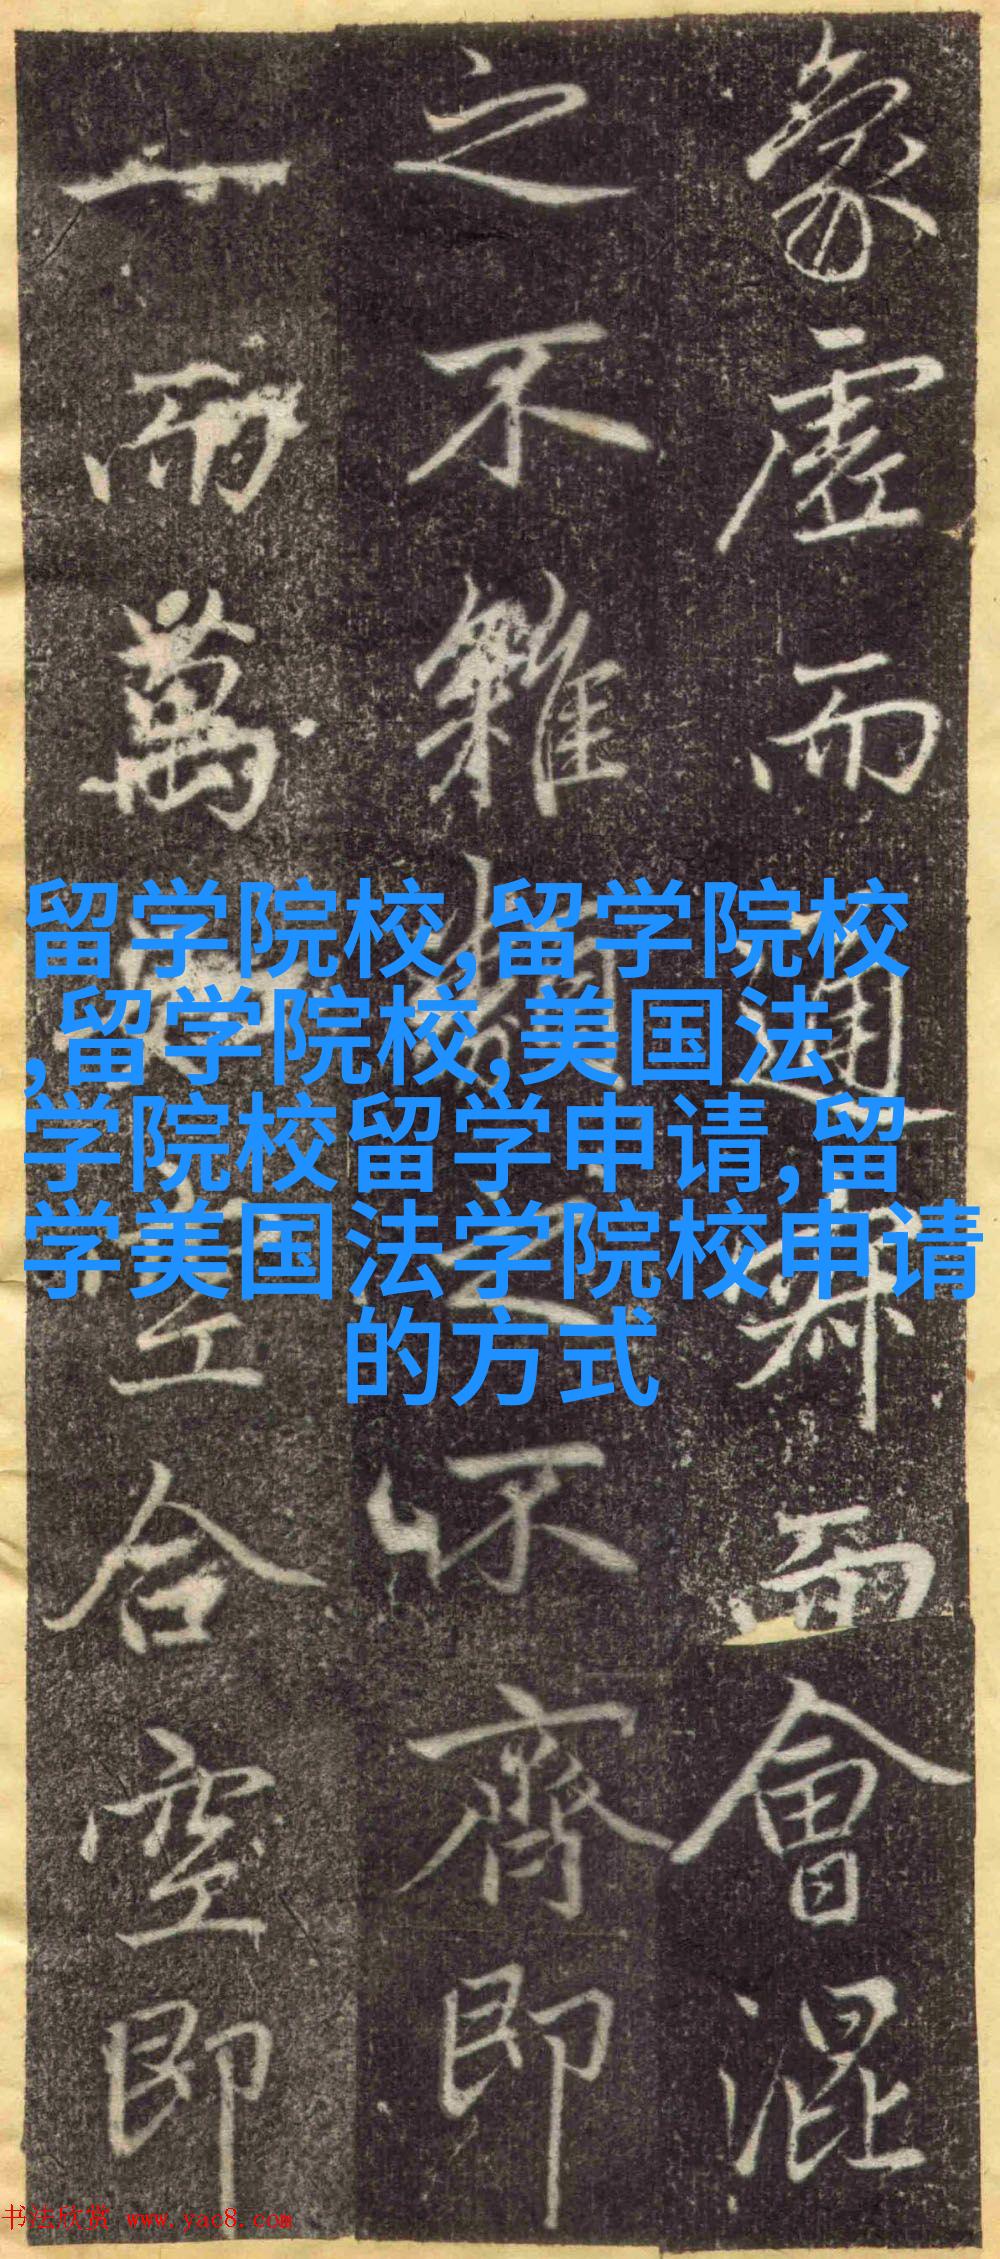 象虛而通而會混
之不雜類之不齊即
一而萬空合空即
留学院校,留学院校
,留学院校,美国法
学院校留学申请,留
学美国法学院校申请
的方式
书法欣赏 www.yac8.com